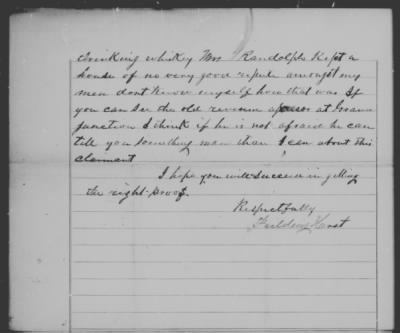 drinking whiskey Mrs Randolph Kept a
house of no very good repute amongst my
men dont know myself how that was If
you can see the old revenue at Grand
junction I think if he is not afraid he can
tell you something more than I can about this
claimant
I hope you will succeed in getting
the right proof.
Respectfully
Fielding Hurst